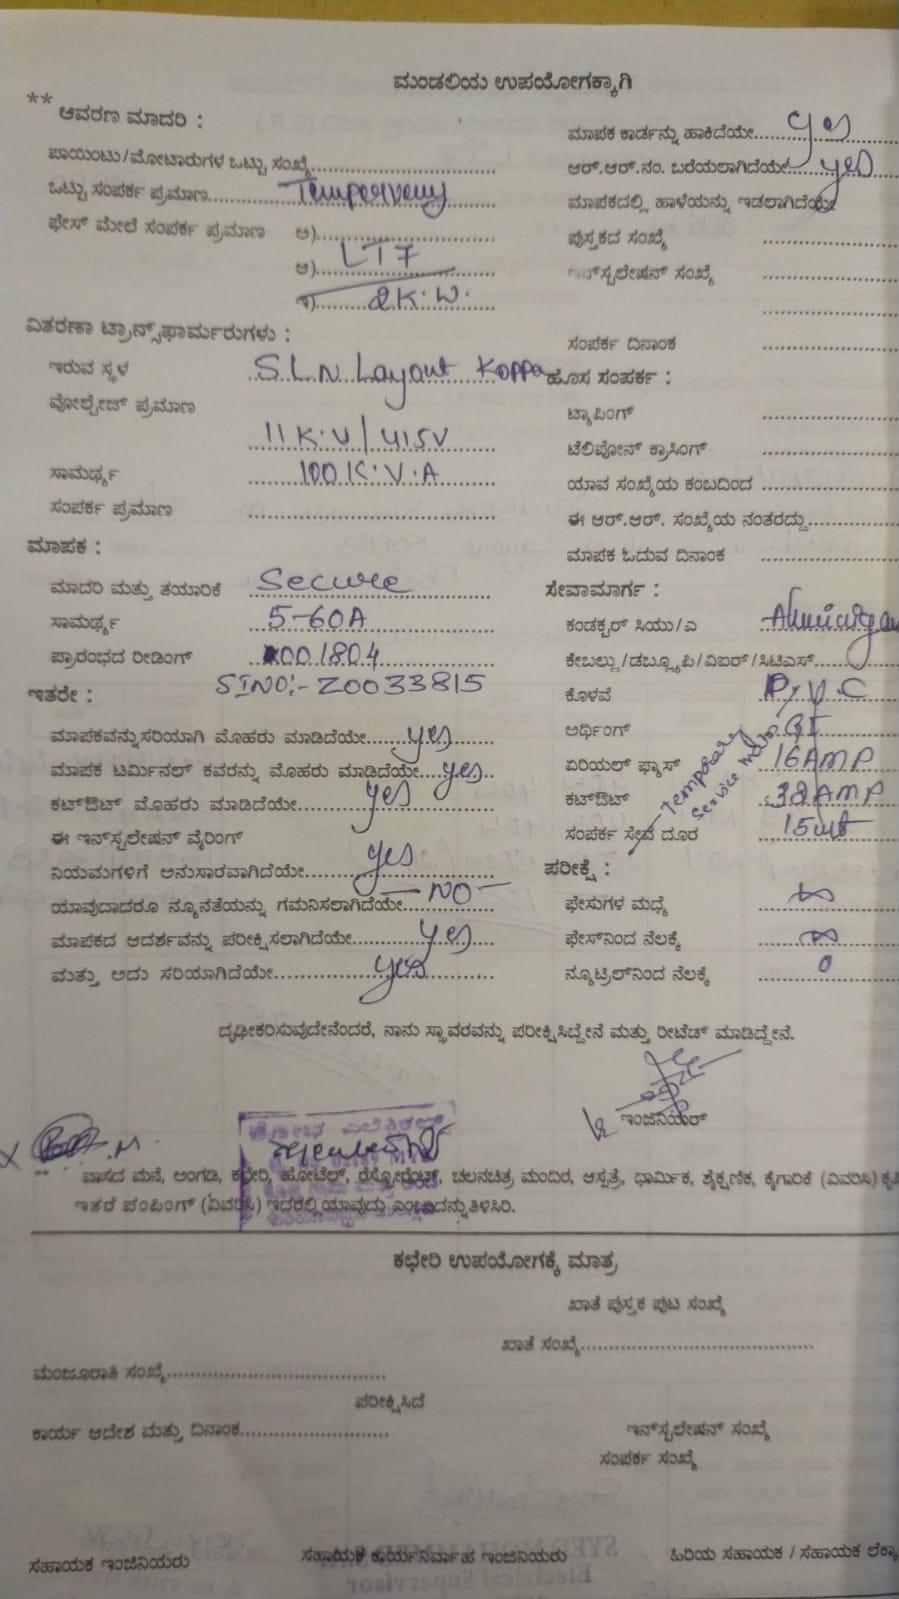 ಮಂಡಲಿಯ ಉಪಯೋಗಕ್ಕಾಗಿ
** ಆವರಣ ಮಾದರಿ :
ಪಾಯಿಂಟು/ಮೋಟಾರುಗಳ ಒಟ್ಟು ಸಂಖ್ಯೆ
ಒಟ್ಟು ಸಂಪರ್ಕ ಪ್ರಮಾಣ
ಫೇಸ್ ಮೇಲೆ ಸಂಪರ್ಕ ಪ್ರಮಾಣ ಅ)
ಆ) LT7
ಇ) 2K.W.
ವಿತರಣಾ ಟ್ರಾನ್ಸ್‌ಫಾರ್ಮರುಗಳು :
ಇರುವ ಸ್ಥಳ S.L.N Layout Koppa
ವೋಲ್ಟೇಜ್ ಪ್ರಮಾಣ
11K.V/415V
ಸಾಮರ್ಥ್ಯ 100K.V.A
ಸಂಪರ್ಕ ಪ್ರಮಾಣ
ಮಾಪಕ :
ಮಾದರಿ ಮತ್ತು ತಯಾರಿಕೆ Secure
ಸಾಮರ್ಥ್ಯ 5-60A
ಪ್ರಾರಂಭದ ರೀಡಿಂಗ್ 001804
SINO:- Z0033815
ಇತರೇ :
ಮಾಪಕವನ್ನುಸರಿಯಾಗಿ ಮೊಹರು ಮಾಡಿದೆಯೇ yes
ಮಾಪಕ ಟರ್ಮಿನಲ್ ಕವರನ್ನು ಮೊಹರು ಮಾಡಿದೆಯೇ yes
ಕಟ್‌ಔಟ್ ಮೊಹರು ಮಾಡಿದೆಯೇ yes
ಈ ಇನ್‌ಸ್ಟಲೇಷನ್ ವೈರಿಂಗ್
ನಿಯಮಗಳಿಗೆ ಅನುಸಾರವಾಗಿದೆಯೇ yes
ಯಾವುದಾದರೂ ನ್ಯೂನತೆಯನ್ನು ಗಮನಿಸಲಾಗಿದೆಯೇ - NO -
ಮಾಪಕದ ಆದರ್ಶವನ್ನು ಪರೀಕ್ಷಿಸಲಾಗಿದೆಯೇ yes
ಮತ್ತು ಅದು ಸರಿಯಾಗಿದೆಯೇ yes
ಮಾಪಕ ಕಾರ್ಡನ್ನು ಹಾಕಿದೆಯೇ yes
ಆರ್.ಆರ್.ನಂ. ಬರೆಯಲಾಗಿದೆಯೇ yes
ಮಾಪಕದಲ್ಲಿ ಹಾಳೆಯನ್ನು ಇಡಲಾಗಿದೆಯೇ
ಪುಸ್ತಕದ ಸಂಖ್ಯೆ
ಇನ್‌ಸ್ಟಲೇಷನ್ ಸಂಖ್ಯೆ
ಸಂಪರ್ಕ ದಿನಾಂಕ
ಹೊಸ ಸಂಪರ್ಕ :
ಟ್ಯಾಪಿಂಗ್
ಟೆಲಿಫೋನ್ ಕ್ರಾಸಿಂಗ್
ಯಾವ ಸಂಖ್ಯೆಯ ಕಂಬದಿಂದ
ಈ ಆರ್.ಆರ್. ಸಂಖ್ಯೆಯ ನಂತರದ್ದು
ಮಾಪಕ ಓದುವ ದಿನಾಂಕ
ಸೇವಾಮಾರ್ಗ :
ಕಂಡಕ್ಟರ್ ಸಿಯು/ಎ
ಕೇಬಲ್ಲು/ಡಬ್ಲ್ಯೂಪಿ/ವಿಐರ್/ಸಿಟಿಎಸ್
ಕೊಳವೆ P.V.C
ಅರ್ಥಿಂಗ್ GI
ಏರಿಯಲ್ ಫ್ಯೂಸ್ 16AMP
ಕಟ್‌ಔಟ್ 32AMP
ಸಂಪರ್ಕ ಸೇವೆ ದೂರ 15
Temporary
Service
ಪರೀಕ್ಷೆ :
ಫೇಸುಗಳ ಮಧ್ಯೆ ∞
ಫೇಸ್‌ನಿಂದ ನೆಲಕ್ಕೆ ∞
ನ್ಯೂಟ್ರಲ್‌ನಿಂದ ನೆಲಕ್ಕೆ 0
ದೃಢೀಕರಿಸುವುದೇನೆಂದರೆ, ನಾನು ಸ್ಥಾವರವನ್ನು ಪರೀಕ್ಷಿಸಿದ್ದೇನೆ ಮತ್ತು ರೀಟೆಡ್ ಮಾಡಿದ್ದೇನೆ.
ಇಂಜಿನಿಯರ್
** ವಾಸದ ಮನೆ, ಅಂಗಡಿ, ಕಛೇರಿ, ಹೋಟೆಲ್, ರೆಸ್ಟೋರೆಂಟ್, ಚಲನಚಿತ್ರ ಮಂದಿರ, ಆಸ್ಪತ್ರೆ, ಧಾರ್ಮಿಕ, ಶೈಕ್ಷಣಿಕ, ಕೈಗಾರಿಕೆ (ವಿವರಿಸಿ)
ಇತರೆ ಪಂಪಿಂಗ್ (ವಿವರಿಸಿ) ಇದರಲ್ಲಿ ಯಾವುದು ಎಂಬುದನ್ನು ತಿಳಿಸಿರಿ.
ಕಛೇರಿ ಉಪಯೋಗಕ್ಕೆ ಮಾತ್ರ
ಖಾತೆ ಪುಸ್ತಕ ಪುಟ ಸಂಖ್ಯೆ
ಖಾತೆ ಸಂಖ್ಯೆ
ಮಂಜೂರಾತಿ ಸಂಖ್ಯೆ
ಪರೀಕ್ಷಿಸಿದೆ
ಕಾರ್ಯ ಆದೇಶ ಮತ್ತು ದಿನಾಂಕ
ಇನ್‌ಸ್ಟಲೇಷನ್ ಸಂಖ್ಯೆ
ಸಂಪರ್ಕ ಸಂಖ್ಯೆ
ಸಹಾಯಕ ಇಂಜಿನಿಯರು ಸಹಾಯಕ ಕಾರ್ಯನಿರ್ವಾಹ ಇಂಜಿನಿಯರು ಹಿರಿಯ ಸಹಾಯಕ / ಸಹಾಯಕ